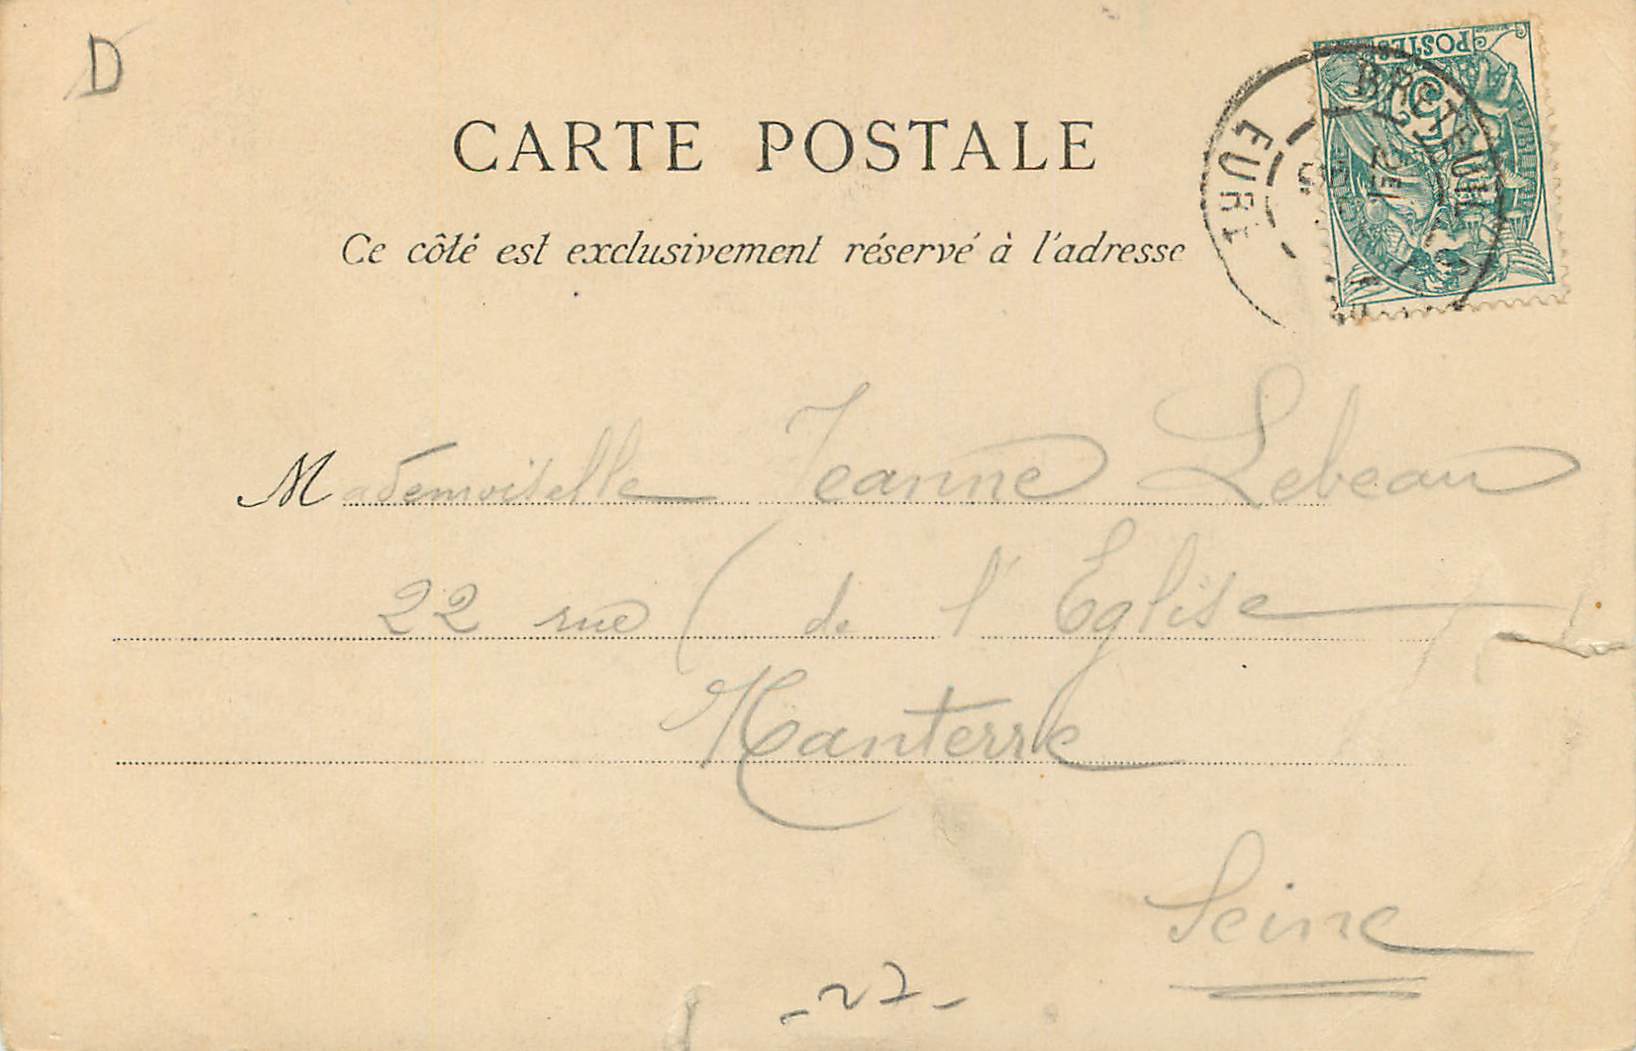 D
CARTE POSTALE
Ce côté est exclusivement réservé à l'adresse
POSTES
BRETEUIL
EURE
Mademoiselle Jeanne Lebeau
22 rue de l'Eglise
Nanterre
Seine
- 27 -